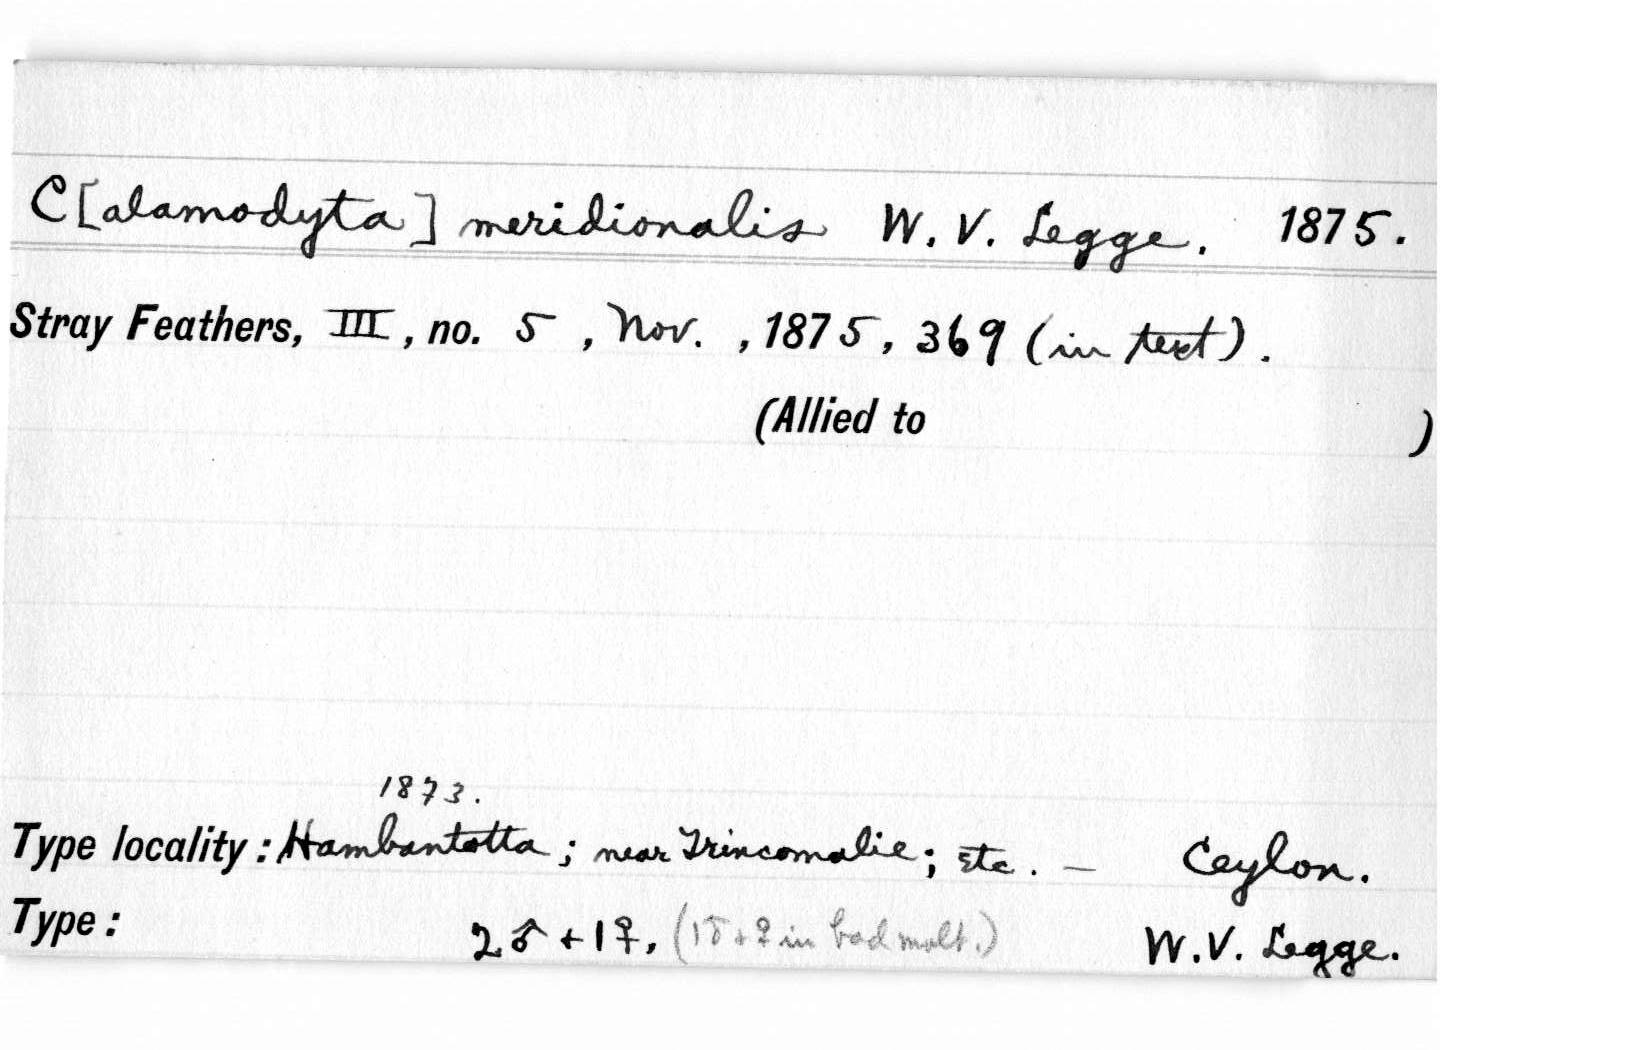 C[alamodyta] meridionalis W. V. Legge. 1875.
Stray Feathers, III, no. 5, Nov., 1875, 369 (in text).
(Allied to )
1873.
Type locality: Hambantotta; near Trincomalie; etc. — Ceylon.
Type: 2♂ + 1♀, (1♂ + ♀ in bad molt.) W. V. Legge.